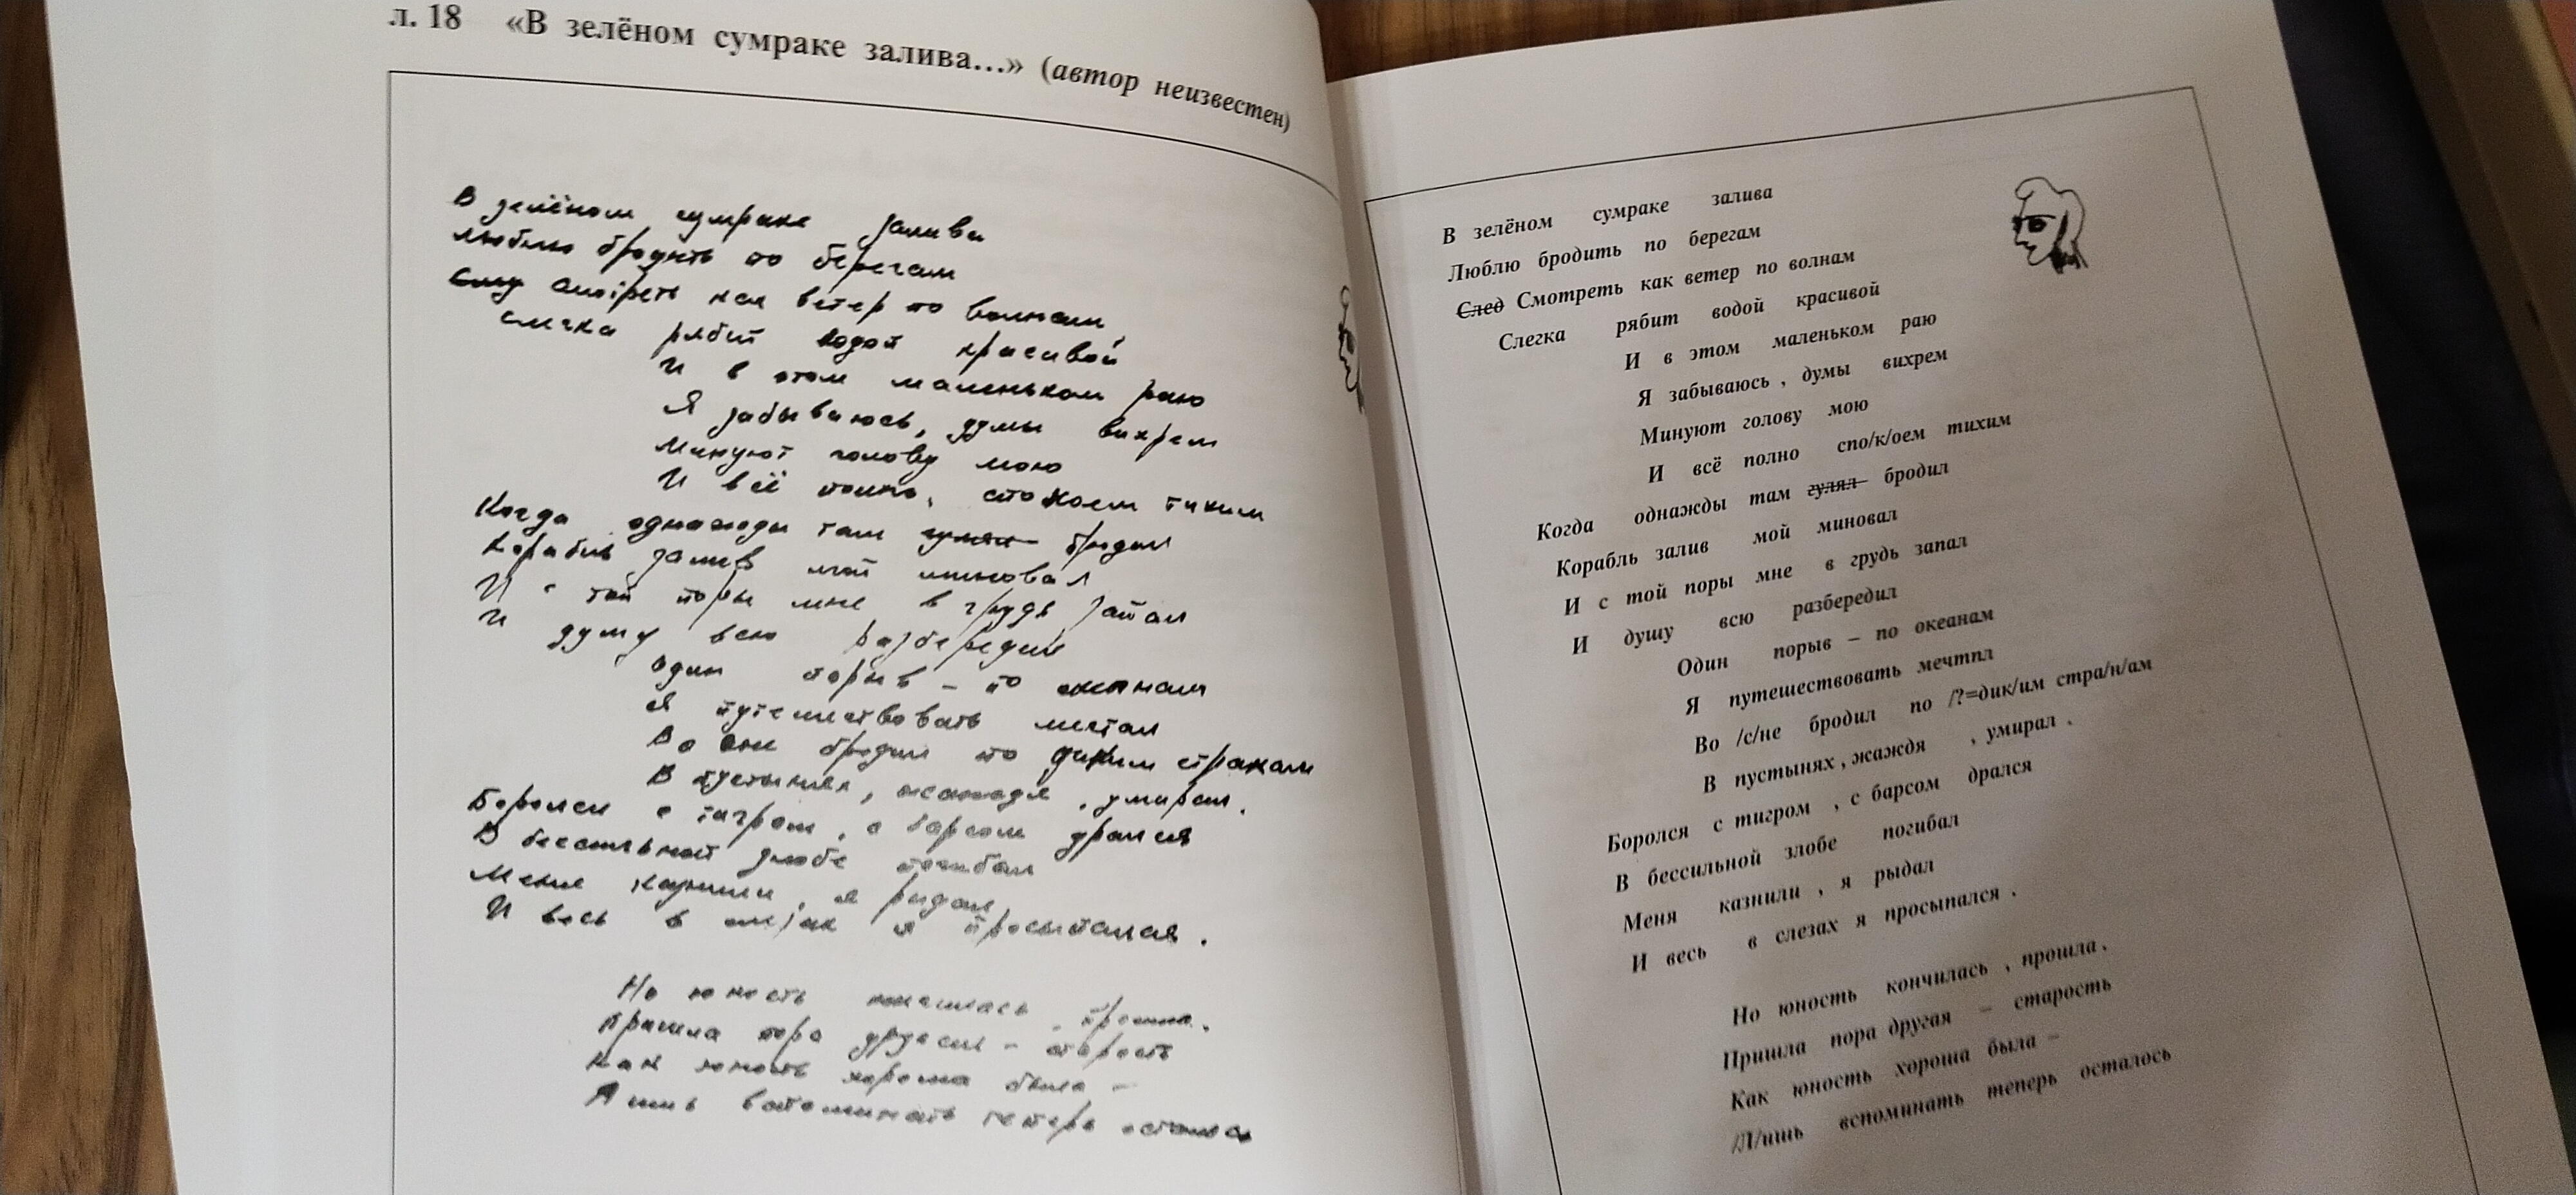 л. 18 «В зелёном сумраке залива...» (автор неизвестен)
В зелёном сумраке залива
Люблю бродить по берегам
След Смотреть как ветер по волнам
Слегка рябит водой красивой
И в этом маленьком раю
Я забываюсь, думы вихрем
Минуют голову мою
И всё полно, спокоем тихим
Когда однажды там гулял бродил
Корабль залив мой миновал
И с той поры мне в грудь запал
И душу всю разбередил
Один порыв – по океанам
Я путешествовать мечтал
Во сне бродил по диким странам
В пустынях, жаждя, умирал.
Боролся с тигром, с барсом дрался
В бессильной злобе погибал
Меня казнили, я рыдал
И весь в слезах я просыпался.
Но юность кончилась, прошла.
Пришла пора другая – старость
Как юность хороша была –
Лишь вспоминать теперь осталось
В зелёном сумраке залива
Люблю бродить по берегам
След Смотреть как ветер по волнам
Слегка рябит водой красивой
И в этом маленьком раю
Я забываюсь , думы вихрем
Минуют голову мою
И всё полно спо/к/оем тихим
Когда однажды там гулял бродил
Корабль залив мой миновал
И с той поры мне в грудь запал
И душу всю разбередил
Один порыв – по океанам
Я путешествовать мечтпл
Во /с/не бродил по /?=дик/им стра/н/ам
В пустынях , жаждя , умирал .
Боролся с тигром , с барсом дрался
В бессильной злобе погибал
Меня казнили , я рыдал
И весь в слезах я просыпался .
Но юность кончилась , прошла .
Пришла пора другая – старость
Как юность хороша была –
/Л/ишь вспоминать теперь осталось